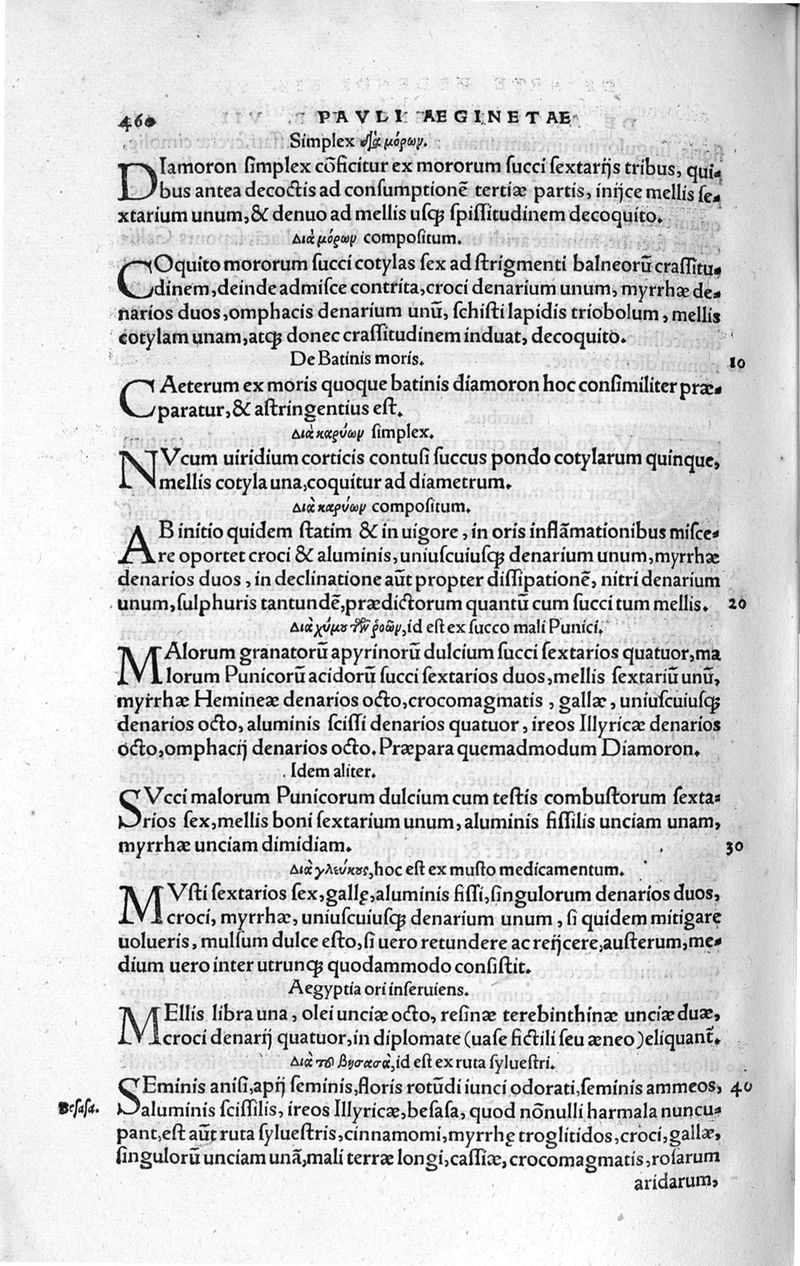 460 PAVLI AEGINETAE
Simplex διὰ μόρων.
DIamoron simplex cõficitur ex mororum succi sextarijs tribus, qui-
bus antea decoctis ad consumptionẽ tertiæ partis, inijce mellis se-
xtarium unum, & denuo ad mellis usq; spissitudinem decoquito.
Διὰ μόρων compositum.
COquito mororum succi cotylas sex ad strigmenti balneorũ crassitu-
dinem, deinde admisce contrita, croci denarium unum, myrrhæ de-
narios duos, omphacis denarium unũ, schisti lapidis triobolum, mellis
cotylam unam, atq; donec crassitudinem induat, decoquito.
De Batinis moris. 10
CAeterum ex moris quoque batinis diamoron hoc consimiliter præ-
paratur, & astringentius est.
Διὰ καρύων simplex.
NVcum uiridium corticis contusi succus pondo cotylarum quinque,
mellis cotyla una, coquitur ad diametrum.
Διὰ καρύων compositum.
AB initio quidem statim & in uigore, in oris inflãmationibus misce-
re oportet croci & aluminis, uniuscuiusq; denarium unum, myrrhæ
denarios duos, in declinatione aũt propter dissipationẽ, nitri denarium
unum, sulphuris tantundẽ, prædictorum quantũ cum succi tum mellis. 20
Διὰ χύμου τῶν ῥοῶν, id est ex succo mali Punici.
MAlorum granatorũ apyrinorũ dulcium succi sextarios quatuor, ma
lorum Punicorũ acidorũ succi sextarios duos, mellis sextariũ unũ,
myrrhæ Hemineæ denarios octo, crocomagmatis, gallæ, uniuscuiusq;
denarios octo, aluminis scissi denarios quatuor, ireos Illyricæ denarios
octo, omphacij denarios octo. Præpara quemadmodum Diamoron.
Idem aliter.
SVcci malorum Punicorum dulcium cum testis combustorum sexta-
rios sex, mellis boni sextarium unum, aluminis fissilis unciam unam,
myrrhæ unciam dimidiam. 30
Διὰ γλεύκους, hoc est ex musto medicamentum.
MVsti sextarios sex, gallę, aluminis fissi, singulorum denarios duos,
croci, myrrhæ, uniuscuiusq; denarium unum, si quidem mitigare
uolueris, mulsum dulce esto, si uero retundere ac reijcere, austerum, me-
dium uero inter utrunq; quodammodo consistit.
Aegyptia ori inseruiens.
MEllis libra una, olei unciæ octo, resinæ terebinthinæ unciæ duæ,
croci denarij quatuor, in diplomate (uase fictili seu æneo) eliquant̃.
Διὰ τοῦ βησασᾶ, id est ex ruta syluestri.
SEminis anisi, apij seminis, floris rotũdi iunci odorati, seminis ammeos, 40
Besasa. aluminis scissilis, ireos Illyricæ, besasa, quod nõnulli harmala nuncu-
pant, est aũt ruta syluestris, cinnamomi, myrrhę troglitidos, croci, gallæ,
singulorũ unciam unã, mali terræ longi, cassiæ, crocomagmatis, rosarum
aridarum,